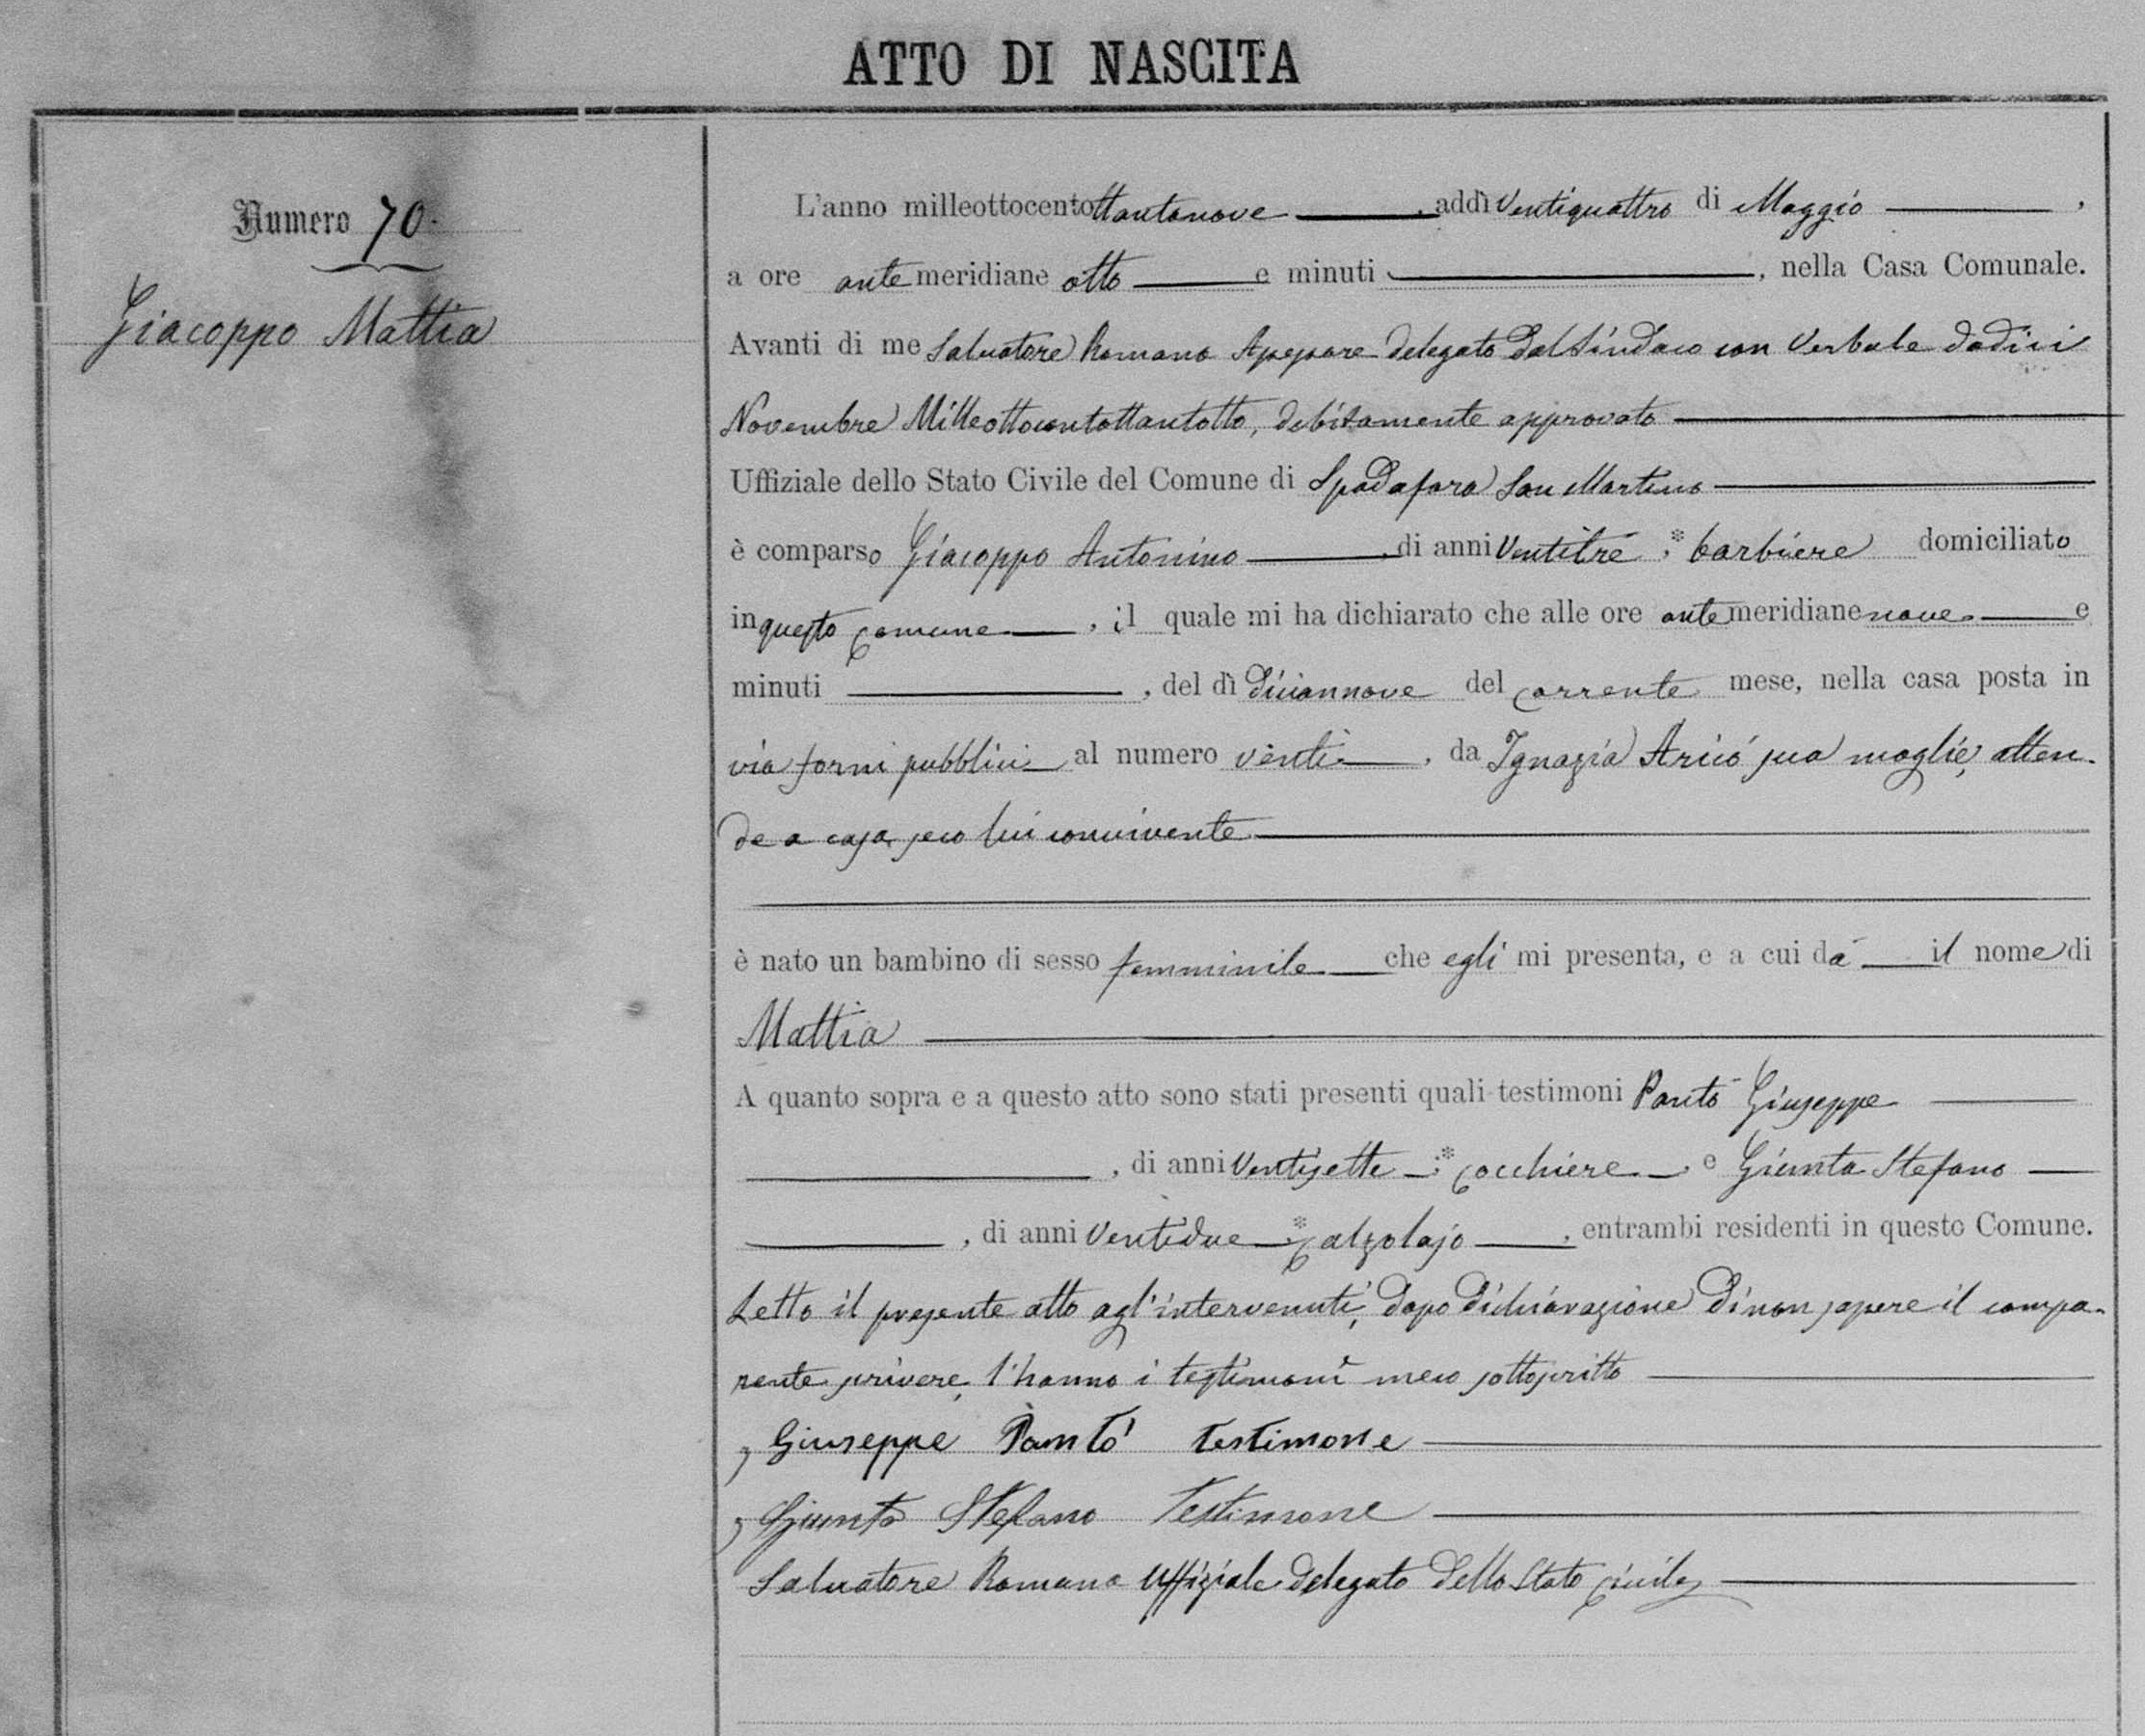 ATTO DI NASCITA
Numero 70.
Giacoppo Mattia
L'anno milleottocentottantanove, addì ventiquattro di Maggio,
a ore antemeridiane otto e minuti, nella Casa Comunale.
Avanti di me Salvatore Romano Assessore delegato dal Sindaco con Verbale dodici
Novembre Milleottocentottantotto, debitamente approvato
Uffiziale dello Stato Civile del Comune di Spadafora San Martino
è comparso Giacoppo Antonino, di anni ventitré, * barbiere domiciliato
in questo comune, il quale mi ha dichiarato che alle ore antemeridiane nove e
minuti, del dì diciannove del corrente mese, nella casa posta in
via forni pubblici al numero venti, da Ignazia Aricó sua moglie, atten-
de a casa, seco lui convivente
è nato un bambino di sesso femminile che egli mi presenta, e a cui dà il nome di
Mattia
A quanto sopra e a questo atto sono stati presenti quali testimoni Pantò Giuseppe
, di anni ventisette, * cocchiere, e Giunta Stefano
, di anni ventidue, * calzolajo, entrambi residenti in questo Comune.
Letto il presente atto agl'intervenuti, dopo dichiarazione di non sapere il compa-
rente scrivere, l'hanno i testimonî meco sottoscritto
, Giuseppe Pantó testimone
, Giunta Stefano Testimone
Salvatore Romano Uffiziale delegato dello Stato Civile